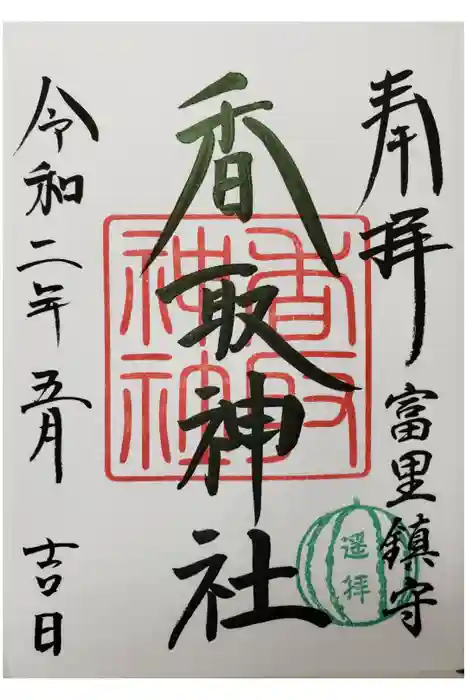 奉拝 富里鎮守
遥拝
香取神社
香取神社
令和二年五月 吉日